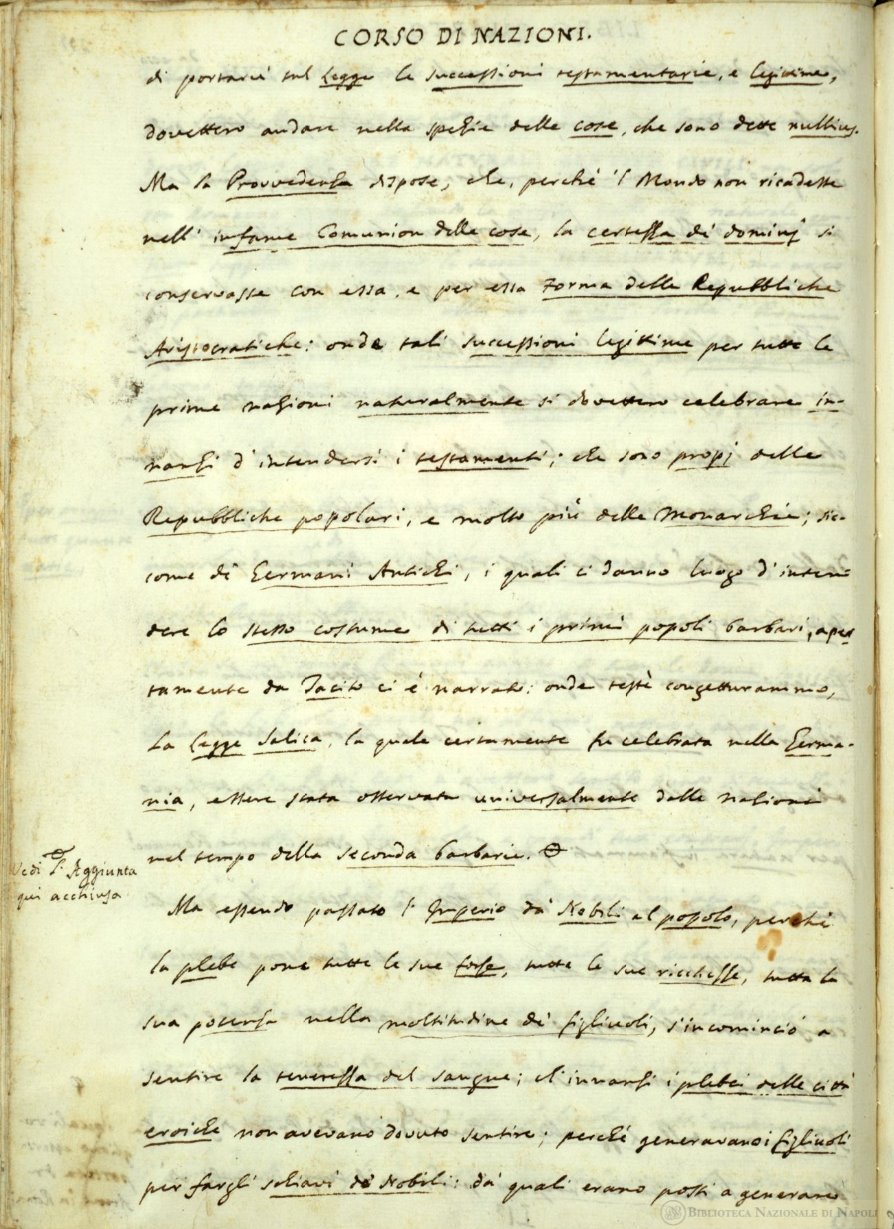 CORSO DI NAZIONI.
di portarci sul Legge le successioni testamentarie, e legittime,
dovettero andare nella spezie delle cose, che sono dette nullius.
Ma la Provvedenza dispose, che, perchè 'l Mondo non ricadesse
nell' infame Comunion delle cose, la certezza de' dominj si
conservasse con essa, e per essa Forma delle Repubbliche
Aristocratiche: onde tali successioni legittime per tutte le
prime nazioni naturalmente si dovettero celebrare in-
nanzi d'intendersi i testamenti; che sono propj delle
Repubbliche popolari, e molto più delle Monarchie; sic-
come de' Germani Antichi, i quali ci danno luogo d'inten-
dere lo stesso costume di tutti i primi popoli barbari, aper
tamente da Tacito ci è narrato: onde testè congetturammo,
La Legge Salica, la quale certamente fu celebrata nella Germa-
nia, essere stata osservata universalmente dalle nazioni
nel tempo della seconda barbarie.
Vedi l'Aggiunta
qui acchiusa
Ma essendo passato l'Imperio da' Nobili al popolo, perchè
la plebe pone tutte le sue forze, tutte le sue ricchezze, tutta la
sua potenza nella moltitudine de' figliuoli, s'incominciò a
sentire la tenerezza del sangue; ch'innanzi i plebei delle città
eroiche non avevano dovuto sentire; perchè generavano i figliuoli
per fargli schiavi de' Nobili: da' quali erano posti a generare
BIBLIOTECA NAZIONALE DI NAPOLI